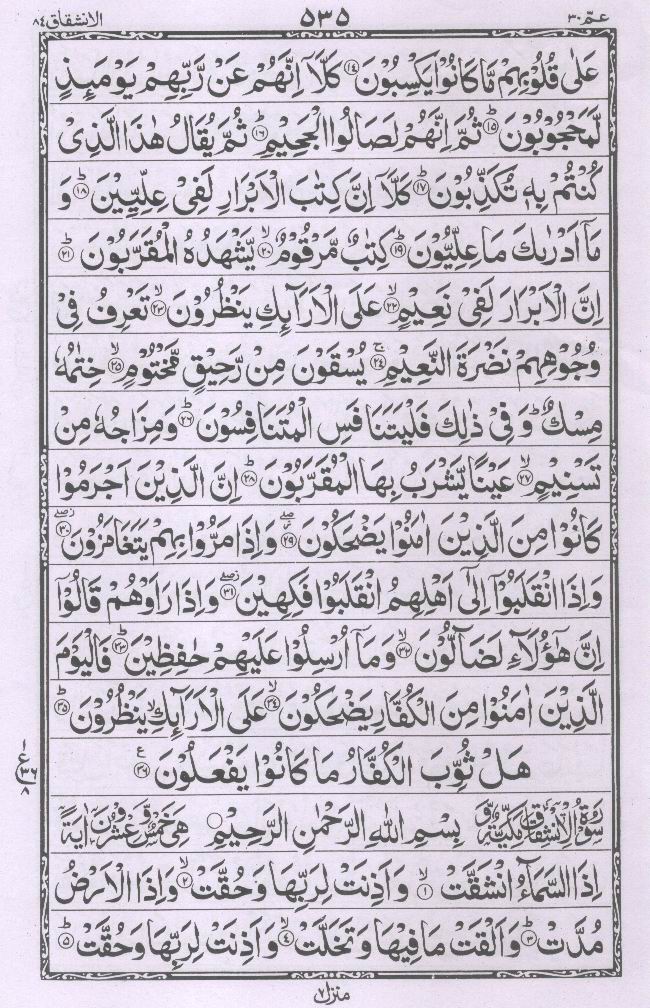 عـمّ ٣٠ ٥٣٥ الانشقاق ٨٤
عَلٰى قُلُوْبِهِمْ مَّا كَانُوْا يَكْسِبُوْنَ ﴿۱۴﴾ كَلَّاۤ اِنَّهُمْ عَنْ رَّبِّهِمْ يَوْمَئِذٍ
لَّمَحْجُوْبُوْنَ ﴿۱۵﴾ؕ ثُمَّ اِنَّهُمْ لَصَالُوا الْجَحِيْمِ ﴿۱۶﴾ؕ ثُمَّ يُقَالُ هٰذَا الَّذِىْ
كُنْتُمْ بِهٖ تُكَذِّبُوْنَ ﴿۱۷﴾ؕ كَلَّاۤ اِنَّ كِتٰبَ الْاَبْرَارِ لَفِىْ عِلِّيِّيْنَ ﴿۱۸﴾ؕ وَ
مَاۤ اَدْرٰىكَ مَا عِلِّيُّوْنَ ﴿۱۹﴾ؕ كِتٰبٌ مَّرْقُوْمٌ ﴿۲۰﴾ۙ يَّشْهَدُهُ الْمُقَرَّبُوْنَ ﴿۲۱﴾ؕ
اِنَّ الْاَبْرَارَ لَفِىْ نَعِيْمٍ ﴿۲۲﴾ۙ عَلَى الْاَرَآئِكِ يَنْظُرُوْنَ ﴿۲۳﴾ۙ تَعْرِفُ فِىْ
وُجُوْهِهِمْ نَضْرَةَ النَّعِيْمِ ﴿۲۴﴾ۚ يُسْقَوْنَ مِنْ رَّحِيْقٍ مَّخْتُوْمٍ ﴿۲۵﴾ۙ خِتٰمُهٗ
مِسْكٌ ؕ وَ فِىْ ذٰلِكَ فَلْيَتَنَافَسِ الْمُتَنَافِسُوْنَ ﴿۲۶﴾ؕ وَ مِزَاجُهٗ مِنْ
تَسْنِيْمٍ ﴿۲۷﴾ۙ عَيْنًا يَّشْرَبُ بِهَا الْمُقَرَّبُوْنَ ﴿۲۸﴾ؕ اِنَّ الَّذِيْنَ اَجْرَمُوْا
كَانُوْا مِنَ الَّذِيْنَ اٰمَنُوْا يَضْحَكُوْنَ ﴿۲۹﴾ وَ اِذَا مَرُّوْا بِهِمْ يَتَغَامَزُوْنَ ﴿۳۰﴾
وَ اِذَا انْقَلَبُوْۤا اِلٰٓى اَهْلِهِمُ انْقَلَبُوْا فَكِهِيْنَ ﴿۳۱﴾ وَ اِذَا رَاَوْهُمْ قَالُوْۤا
اِنَّ هٰٓؤُلَآءِ لَضَآلُّوْنَ ﴿۳۲﴾ۙ وَ مَاۤ اُرْسِلُوْا عَلَيْهِمْ حٰفِظِيْنَ ﴿۳۳﴾ؕ فَالْيَوْمَ
الَّذِيْنَ اٰمَنُوْا مِنَ الْكُفَّارِ يَضْحَكُوْنَ ﴿۳۴﴾ۙ عَلَى الْاَرَآئِكِ ۙ يَنْظُرُوْنَ ﴿۳۵﴾ؕ
هَلْ ثُوِّبَ الْكُفَّارُ مَا كَانُوْا يَفْعَلُوْنَ ﴿۳۶﴾
سُوْرَةُ الْاِنْشِقَاقِ مَكِّيَّةٌ وَّ بِسْمِ اللّٰهِ الرَّحْمٰنِ الرَّحِيْمِ ○ هِىَ خَمْسٌ وَّ عِشْرُوْنَ اٰيَةً
اِذَا السَّمَآءُ انْشَقَّتْ ﴿۱﴾ۙ وَ اَذِنَتْ لِرَبِّهَا وَ حُقَّتْ ﴿۲﴾ۙ وَ اِذَا الْاَرْضُ
مُدَّتْ ﴿۳﴾ؕ وَ اَلْقَتْ مَا فِيْهَا وَ تَخَلَّتْ ﴿۴﴾ۙ وَ اَذِنَتْ لِرَبِّهَا وَ حُقَّتْ ﴿۵﴾ؕ
منزل ٧